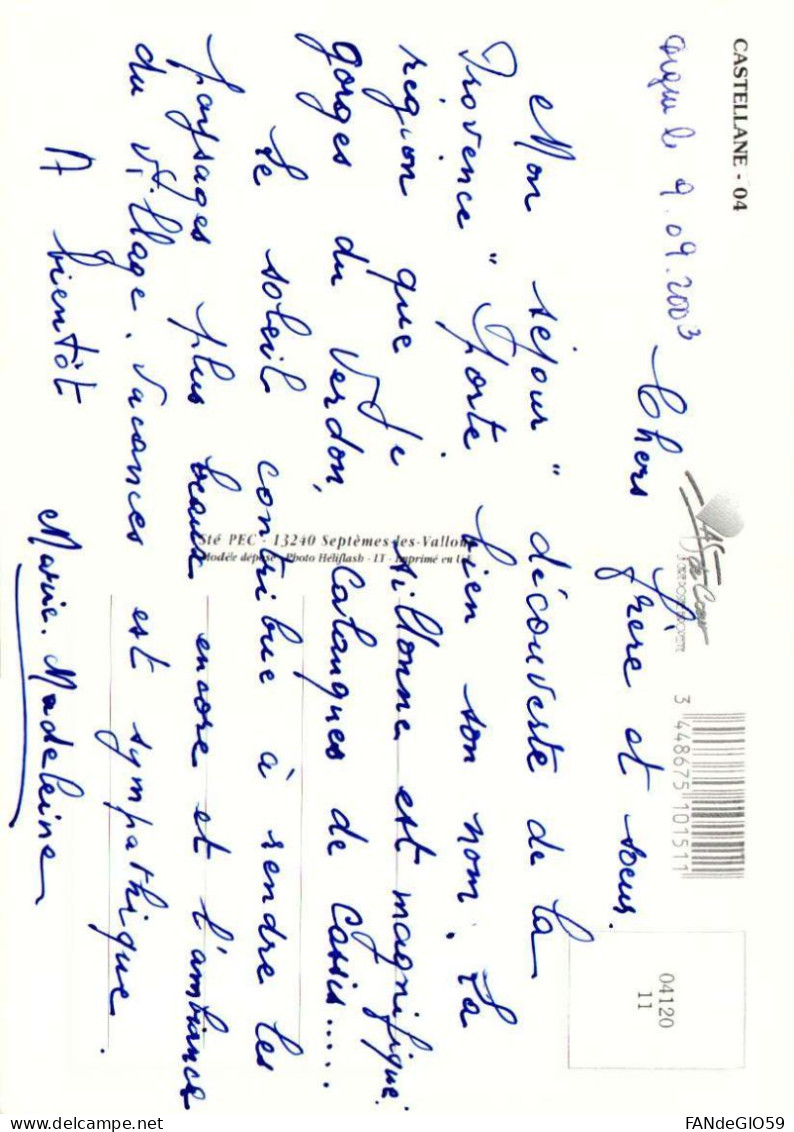 CASTELLANE - 04
reçu le 9.09.2003
Chers frère et soeur.
Mon séjour "découverte de la
Provence" porte bien son nom. La
région que je sillonne est magnifique.
gorges du Verdon, Calanques de Cassis.....
Le soleil contribue à rendre les
paysages plus beaux encore et l'ambiance
du village. vacances est sympathique.
A bientôt
Marie. Madeleine
Sté PEC - 13240 Septèmes-les-Vallons
Modèle déposé - Photo Héliflash - LT - Imprimé en
3 448675 101511
04120
11
FANdeGIO59